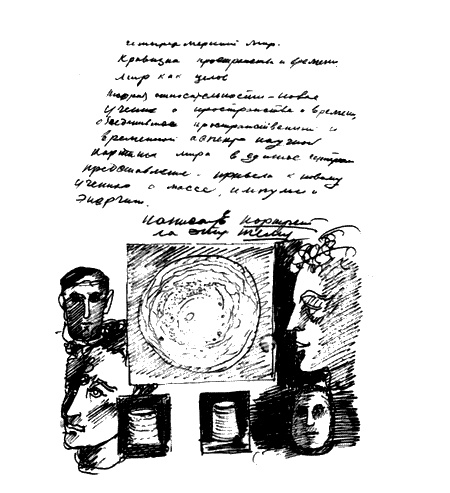 четырехмерный мир.
Кривизна пространства и времени.
Мир как целое
Теория относительности – новое
учение о пространстве и времени,
объединившее пространственный и
временной аспекты научной
картины мира в единое
представление – привела к новому
учению о массе, импульсе и
энергии.
написать портрет
на эту тему